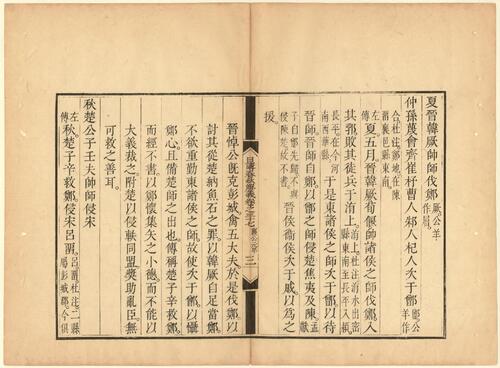 夏晉韓厥帥師伐鄭厥公羊作屈
仲孫蔑會齊崔杼曹人邾人杞人次于鄫鄫公羊作
合杜注鄫地在陳留襄邑縣東南
左傳夏五月晉韓厥荀偃帥諸侯之師伐鄭入
其郛敗其徒兵于洧上洧上杜注洧水出密縣東南至長平入潁
長平在今河南西華縣于是東諸侯之師次于鄫以待
晉師晉師自鄭以鄫之師侵楚焦夷及陳孟獻
子自鄫先歸不與侵陳楚故不書晉侯衛侯次于戚以為之
援
日講春秋解義卷之三十七 襄公元年 三
晉悼公旣克彭城禽五大夫於是伐鄭以
討其從楚納魚石之罪以韓厥自足當鄭
不欲重勤東諸侯之師故使次于鄫以懾
鄭心且備楚師之出也傳稱楚子辛救鄭
而經不書以鄭懷集矢之小德而不能以
大義裁之附楚以侵軼同盟奬助亂臣無
可救之善耳
秋楚公子壬夫帥師侵宋
左傳秋楚子辛救鄭侵宋呂留呂留杜注二縣屬彭城郡今俱